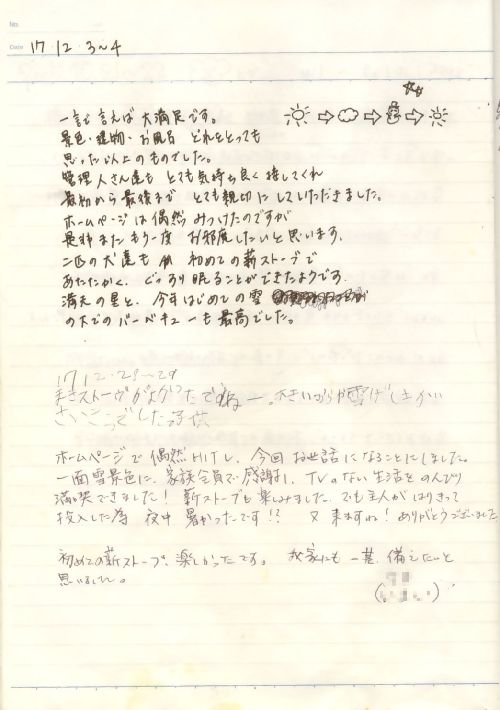 No.
Date 17・12・3〜4
一言で言えば大満足です。
景色・建物・お風呂 どれをとっても
思った以上のものでした。
管理人さん達も とても気持ち良く接してくれ
最初から最後まで とても親切にしていただきました。
ホームページは偶然みつけたのですが
是非また もう一度 お邪魔したいと思います。
二匹の犬達も 初めての薪ストーブで
あたたかく、ぐっすり眠ることができたようです。
満天の星と、今年はじめての雪
の犬でのバーベキューも最高でした。
17 12・28〜29
まきストーヴがよかったですねー。
さいこうでした
ホームページで偶然HITし、今回お世話になることにしました。
一面雪景色に、家族全員で感謝し、TVのない生活をのんびり
満喫できました! 薪ストーブも楽しみました。でも主人がはりきって
投入した為 夜中 暑かったです!? 又来ますね! ありがとうございました
初めての薪ストーブ、楽しかったです。 我家にも一基、備えたいと
思いました。